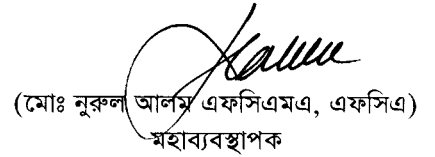 (মোঃ নুরুল আলম এফসিএমএ, এফসিএ)
মহাব্যবস্থাপক